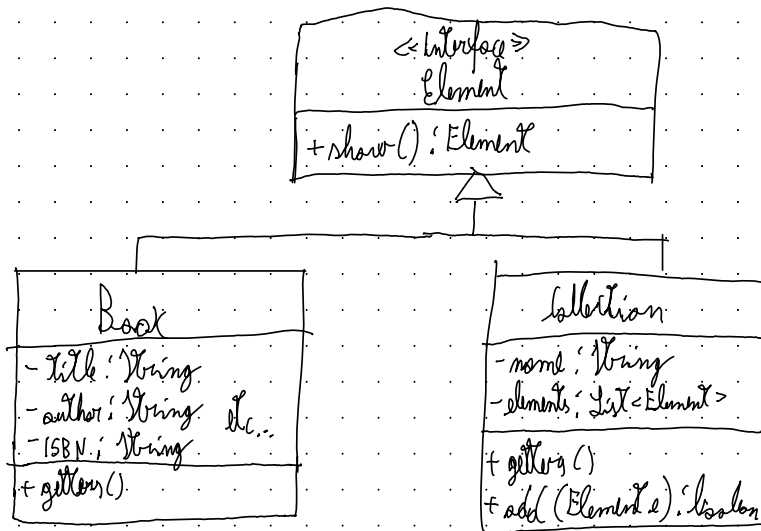 << Interface >>
Element
+ show() : Element
Book
- title : String
- author : String
- ISBN : String
etc...
+ getters()
Collection
- name : String
- elements : List<Element>
+ getters()
+ add (Element e) : boolean